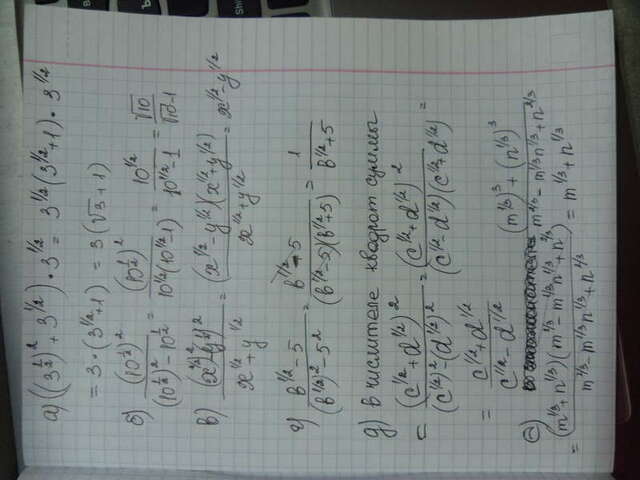 а) ((3^{1/2})^2 + 3^{1/2}) · 3^{1/2} = 3^{1/2}(3^{1/2}+1) · 3^{1/2}
= 3·(3^{1/2}+1) = 3(√3+1)
б) (10^{1/2})^2 / ((10^{1/2})^2 - 10^{1/2}) = (10^{1/2})^2 / (10^{1/2}(10^{1/2}-1)) = 10^{1/2} / (10^{1/2}-1) = √10 / (√10-1)
в) = (x^{1/2}-y^{1/2})(x^{1/2}+y^{1/2}) / (x^{1/2}+y^{1/2}) = x^{1/2}-y^{1/2}
г) (b^{1/2}-5) / ((b^{1/2})^2-5^2) = (b^{1/2}-5) / ((b^{1/2}-5)(b^{1/2}+5)) = 1 / (b^{1/2}+5)
д) в числителе квадрат суммы
= (c^{1/2}+d^{1/2})^2 / ((c^{1/2})^2-(d^{1/2})^2) = (c^{1/2}+d^{1/2})^2 / ((c^{1/2}-d^{1/2})(c^{1/2}+d^{1/2})) =
= (c^{1/2}+d^{1/2}) / (c^{1/2}-d^{1/2})
е) ((m^{1/3})^3 + (n^{1/3})^3) / (m^{2/3} - m^{1/3}n^{1/3} + n^{2/3})
= (m^{1/3}+n^{1/3})(m^{2/3}-m^{1/3}n^{1/3}+n^{2/3}) / (m^{2/3}-m^{1/3}n^{1/3}+n^{2/3}) = m^{1/3}+n^{1/3}